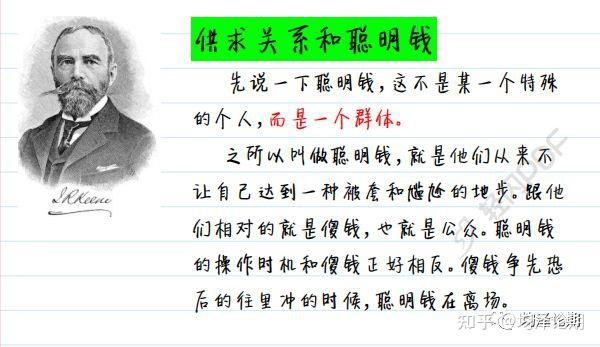 供求关系和聪明钱
先说一下聪明钱,这不是某一个特殊
的个人,而是一个群体。
之所以叫做聪明钱,就是他们从来不
让自己达到一种被套和尴尬的地步。跟他
们相对的就是傻钱,也就是公众。聪明钱
的操作时机和傻钱正好相反。傻钱争先恐
后的往里冲的时候,聪明钱在离场。
J.R.Keene
知乎 @均泽论期
均泽论期